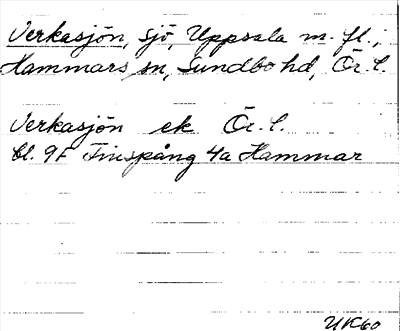 Verkasjön, sjö, Uppsala m. fl.;
Hammars sn, Sundbo hd, Ör. l.
Verkasjön ek Ör. l.
bl. 9F Finspång 4a Hammar
UK60